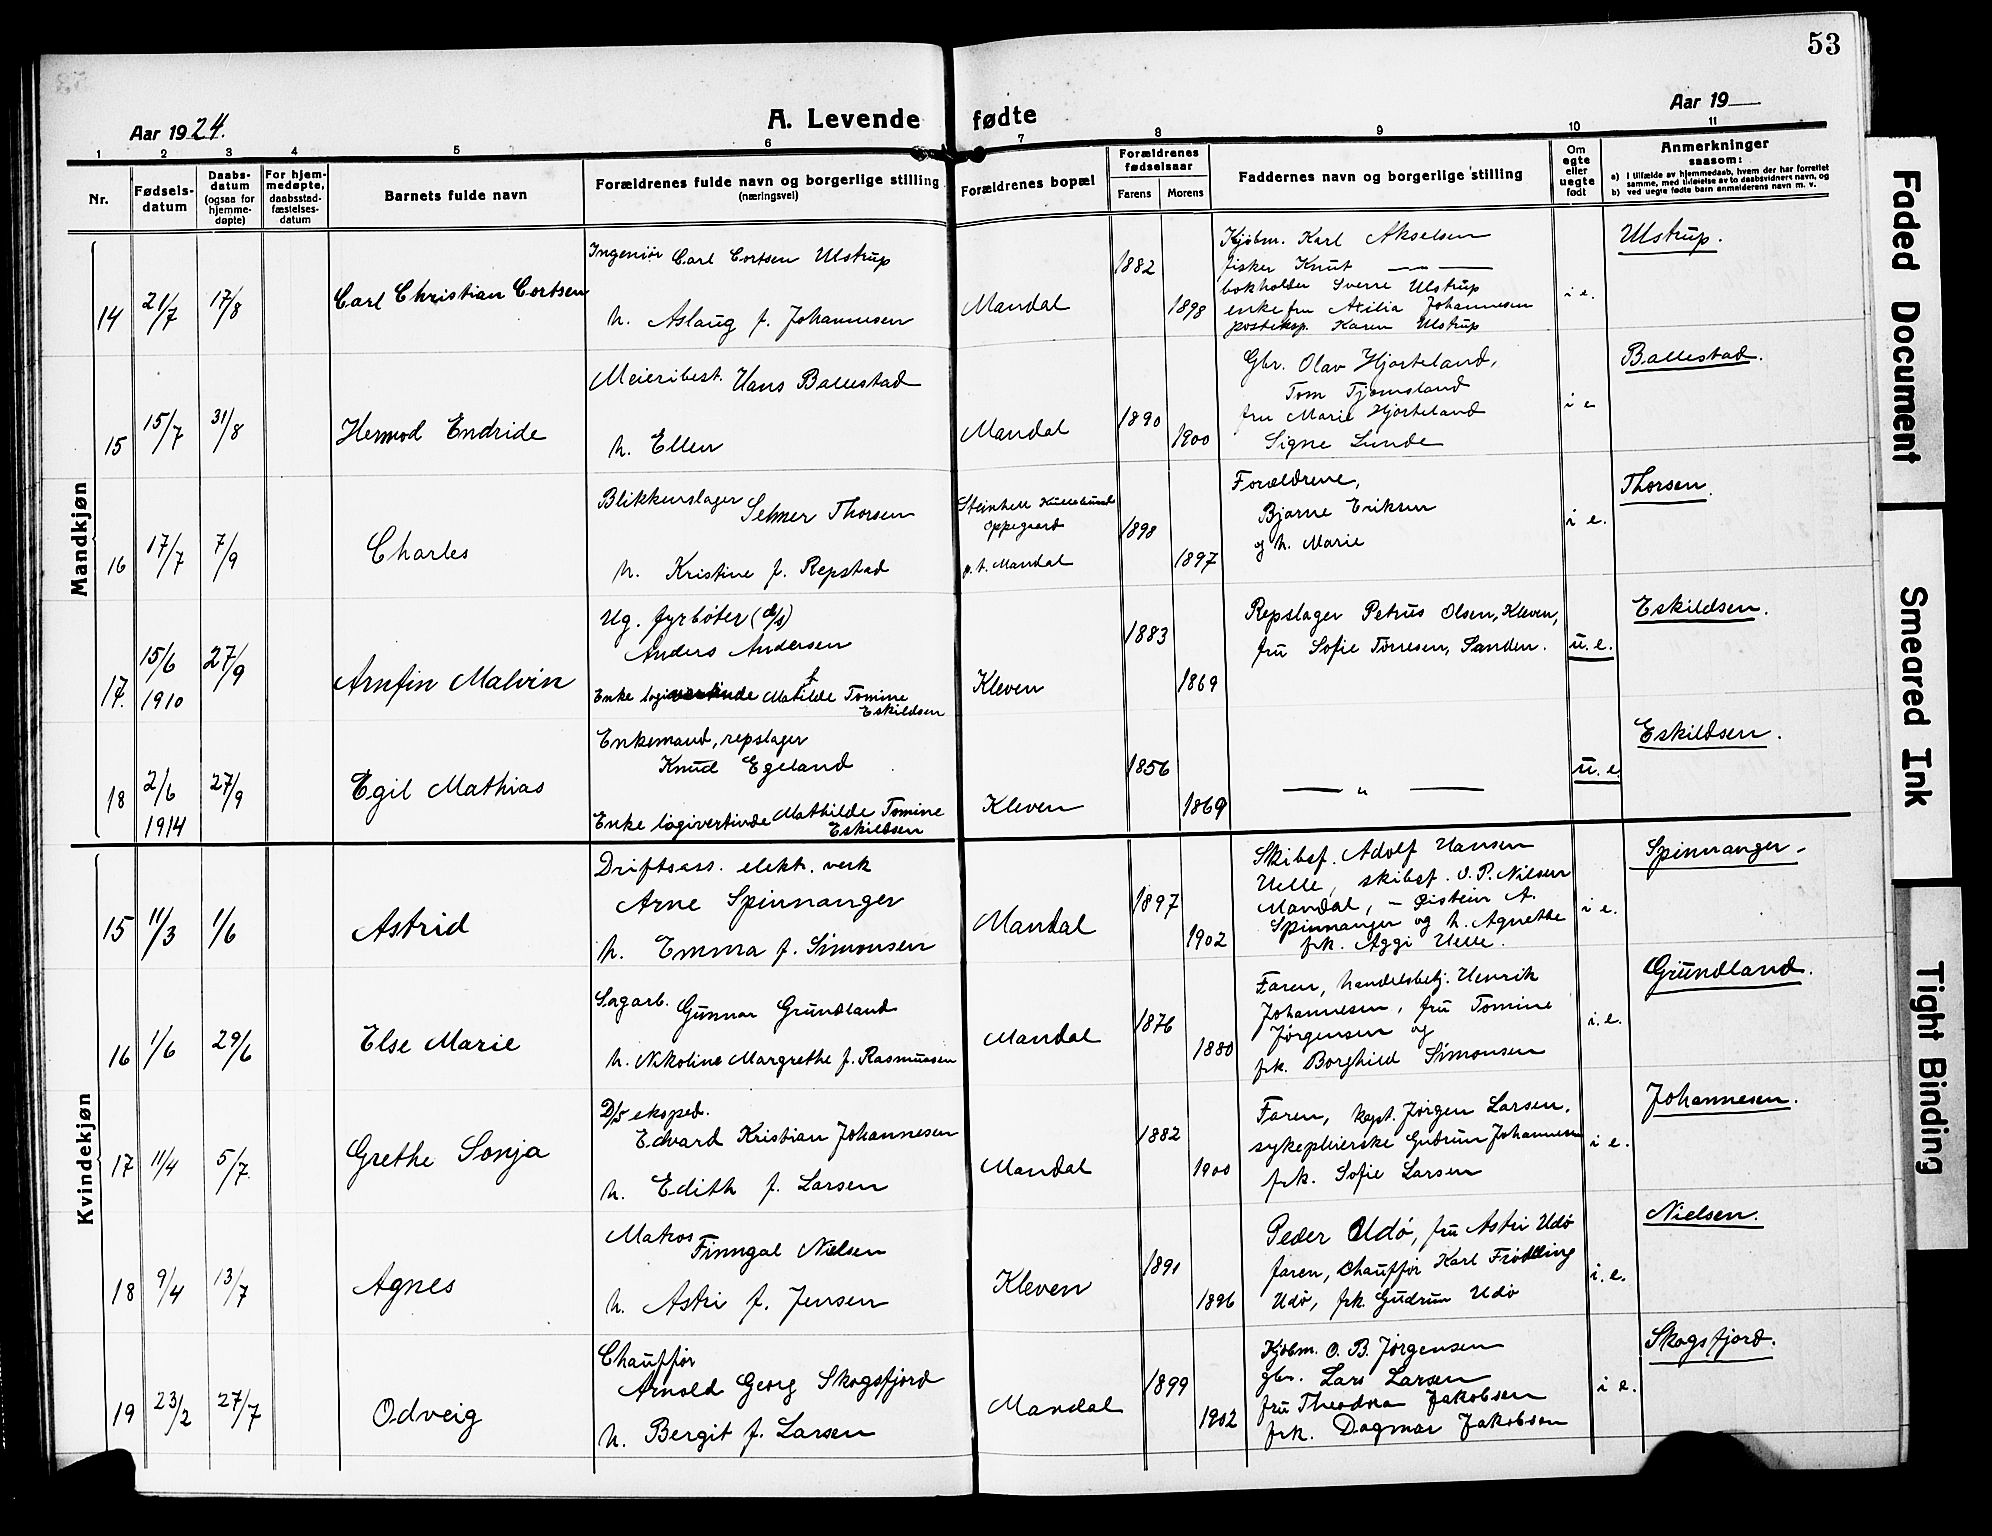 53
Aar 1924.
A. Levende fødte
Aar 19
1 2 3 4 5 6 7 8 9 10 11
Nr.
Fødsels-
datum
Daabs-
datum
(ogsaa for
hjemme-
døpte)
For hjem-
medøpte,
daabsstad-
fæstelses-
datum
Barnets fulde navn
Forældrenes fulde navn og borgerlige stilling
(næringsvei)
Forældrenes bopæl
Forældrenes
fødselsaar
Farens
Morens
Faddernes navn og borgerlige stilling
Om
egte
eller
uegte
født
Anmerkninger
saasom:
a) i tilfælde av hjemmedaab, hvem der har forrettet
samme, med tilføielse av to daabsvidners navn, og
b) ved uegte fødte barn anmelderens navn m. v.
Mandkjøn
14
21/7
17/8
Carl Christian Cortsen
Ingeniør Carl Cortsen Ulstrup
h. Aslaug f. Johannesen
Mandal
1882
1898
Kjøbm. Karl Akselsen
fisker Knut — " —
bokholder Sverre Ulstrup
enkefru Axilia Johannesen
posteksp. Karen Ulstrup
i e.
Ulstrup.
15
15/7
31/8
Hermod Endride
Meieribest. Hans Ballestad
h. Ellen
Mandal
1890
1900
Gbr. Olav Hjorteland,
Tom Tjomsland
fru Marie Hjorteland
Signe Lunde
i e
Ballestad.
16
17/7
7/9
Charles
Blikkenslager Selmer Thorsen
h. Kristine f. Repstad
Oppegaard
p. t. Mandal
1898
1897
Forældrene,
Bjarne Eriksen
og h. Marie
i e.
Thorsen.
17.
15/6
1910
27/9
Arnfin Malvin
Ug. fyrbøter (d/s)
Anders Andersen
Enke logivertinde Matilde Tomine
Eskildsen
Kleven
1883
1869
Repslager Petrus Olsen, Kleven,
fru Sofie Tønnesen, Sanden.
u. e.
Eskildsen.
18
2/6
1914
27/9
Egil Mathias
Enkemand, repslager
Knud Egeland
Enke logivertinde Mathilde Tomine
Eskildsen
Kleven
1856
1869
— " —
u. e.
Eskildsen.
Kvindekjøn
15
11/3
1/6
Astrid
Driftsass. elekt. verk
Arne Spinnanger
h. Emma f. Simonsen
Mandal
1897
1902
Skibsf. Adolf Hansen
Uelle, skibsf. O. P. Nilsen
Mandal, — Øistein A.
Spinnanger og h. Agnethe
frk. Aggi Uelle.
i e.
Spinnanger.
16
1/6
29/6
Else Marie
Sagarb. Gunnar Grundland
h. Nikoline Margrethe f. Rasmussen
Mandal
1876
1880
Faren, handelsbetj. Henrik
Johannesen, fru Tomine
Jørgensen og
frk. Borghild Simonsen
i. e.
Grundland.
17
11/4
5/7
Grethe Sonja
D/S eksped.
Edvard Kristian Johannesen
h. Edith f. Larsen
Mandal
1882
1900
Faren, kapt. Jørgen Larsen,
sykepleierske Gudrun Johannesen
frk. Sofie Larsen
i e.
Johannesen.
18
9/4
13/7
Agnes
Matros Finngal Nielsen
h. Astri f. Jensen
Kleven
1891
1896
Peder Udø, fru Astri Udø
faren, Chauffør Karl
Udø, frk. Gudrun Udø
i. e.
Nielsen.
19
23/2
27/7
Odveig
Chauffør
Arnold Georg Skogsfjord
h. Bergit f. Larsen
Mandal
1899
1902
Kjøbm. O. B. Jørgensen
gbr. Lars Larsen
fru Theodora Jakobsen
frk. Dagmar Jakobsen
i e.
Skogsfjord.
Faded Document
Smeared Ink
Tight Binding